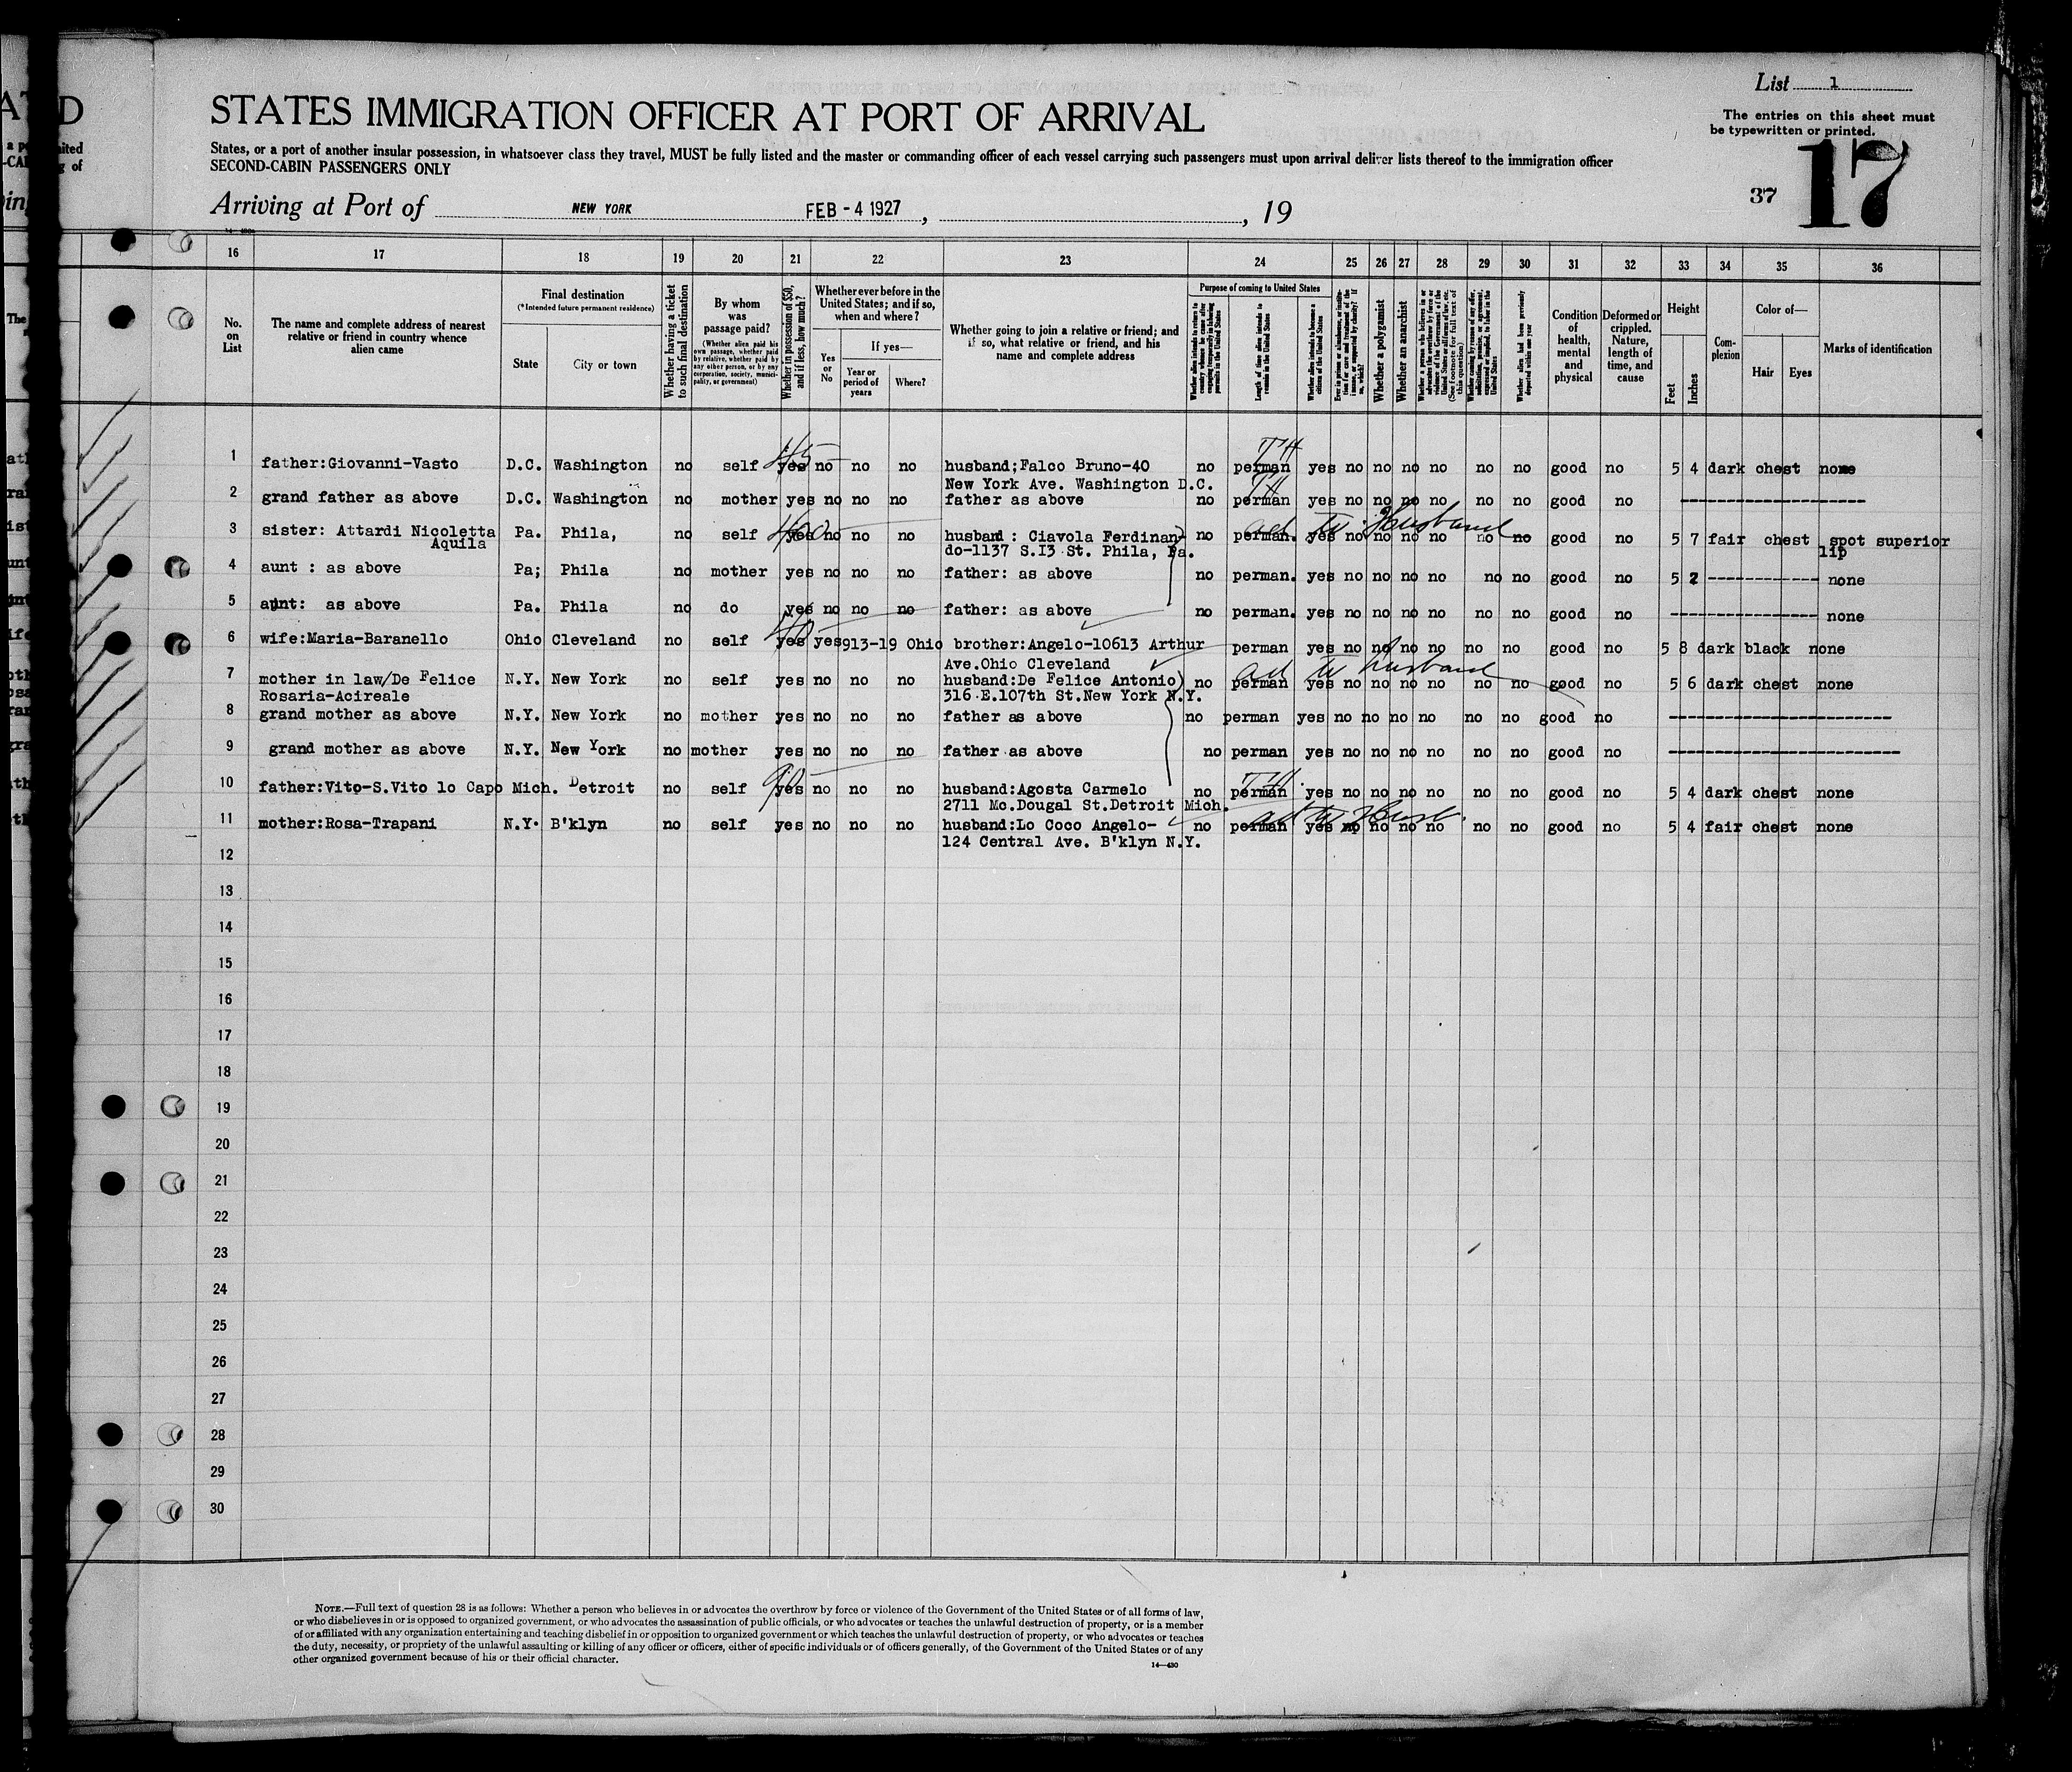 List 1
STATES IMMIGRATION OFFICER AT PORT OF ARRIVAL
The entries on this sheet must
be typewritten or printed.
States, or a port of another insular possession, in whatsoever class they travel, MUST be fully listed and the master or commanding officer of each vessel carrying such passengers must upon arrival deliver lists thereof to the immigration officer
SECOND-CABIN PASSENGERS ONLY
37 17
Arriving at Port of NEW YORK FEB - 4 1927, , 19
16 17 18 19 20 21 22 23 24 25 26 27 28 29 30 31 32 33 34 35 36
No. on List
The name and complete address of nearest relative or friend in country whence alien came
Final destination
(*Intended future permanent residence)
State
City or town
Whether having a ticket to such final destination
By whom was passage paid?
(Whether alien paid his own passage, whether paid by relative, whether paid by any other person, or by any corporation, society, municipality, or government)
Whether in possession of $50, and if less, how much?
Whether ever before in the United States; and if so, when and where?
Yes or No
If yes—
Year or period of years
Where?
Whether going to join a relative or friend; and if so, what relative or friend, and his name and complete address
Purpose of coming to United States
Length of time alien intends to remain in the United States
Whether alien intends to become a citizen of the United States
Whether a polygamist
Whether an anarchist
Condition of health, mental and physical
Deformed or crippled. Nature, length of time, and cause
Height
Feet
Inches
Complexion
Color of—
Hair
Eyes
Marks of identification
1 father:Giovanni-Vasto D.C. Washington no self yes no no no husband;Falco Bruno-40 no perman yes no no no no no no good no 5 4 dark chest none
New York Ave. Washington D.C.
2 grand father as above D.C. Washington no mother yes no no no father as above no perman yes no no no no no no good no
3 sister: Attardi Nicoletta Pa. Phila, no self yes no no no husband : Ciavola Ferdinan- no perman. yes no no no no no no good no 5 7 fair chest spot superior
Aquila do-1137 S.I3 St. Phila, Pa. lip
ad to Husband
4 aunt : as above Pa; Phila no mother yes no no no father: as above no perman. yes no no no no no no good no 5 2 none
5 aunt: as above Pa. Phila no do yes no no no father: as above no perman. yes no no no no no no good no none
6 wife:Maria-Baranello Ohio Cleveland no self yes yes 913-19 Ohio brother:Angelo-10613 Arthur perman yes no no no no no no good no 5 8 dark black none
Ave.Ohio Cleveland
ad to husband
7 mother in law/De Felice N.Y. New York no self yes no no no husband:De Felice Antonio no perman yes no no no no no no good no 5 6 dark chest none
Rosaria-Acireale 316 E.107th St.New York N.Y.
8 grand mother as above N.Y. New York no mother yes no no no father as above no perman yes no no no no no no good no
9 grand mother as above N.Y. New York no mother yes no no no father as above no perman yes no no no no no no good no
10 father:Vito-S.Vito lo Capo Mich. Detroit no self yes no no no husband:Agosta Carmelo no perman yes no no no no no no good no 5 4 dark chest none
2711 Mc.Dougal St.Detroit Mich.
11 mother:Rosa-Trapani N.Y. B'klyn no self yes no no no husband:Lo Coco Angelo- no perman yes no no no no no no good no 5 4 fair chest none
124 Central Ave. B'klyn N.Y.
12
13
14
15
16
17
18
19
20
21
22
23
24
25
26
27
28
29
30
NOTE.—Full text of question 28 is as follows: Whether a person who believes in or advocates the overthrow by force or violence of the Government of the United States or of all forms of law,
or who disbelieves in or is opposed to organized government, or who advocates the assassination of public officials, or who advocates or teaches the unlawful destruction of property, or is a member
of or affiliated with any organization entertaining and teaching disbelief in or opposition to organized government or which teaches the unlawful destruction of property, or who advocates or teaches
the duty, necessity, or propriety of the unlawful assaulting or killing of any officer or officers, either of specific individuals or of officers generally, of the Government of the United States or of any
other organized government because of his or their official character.
14—430